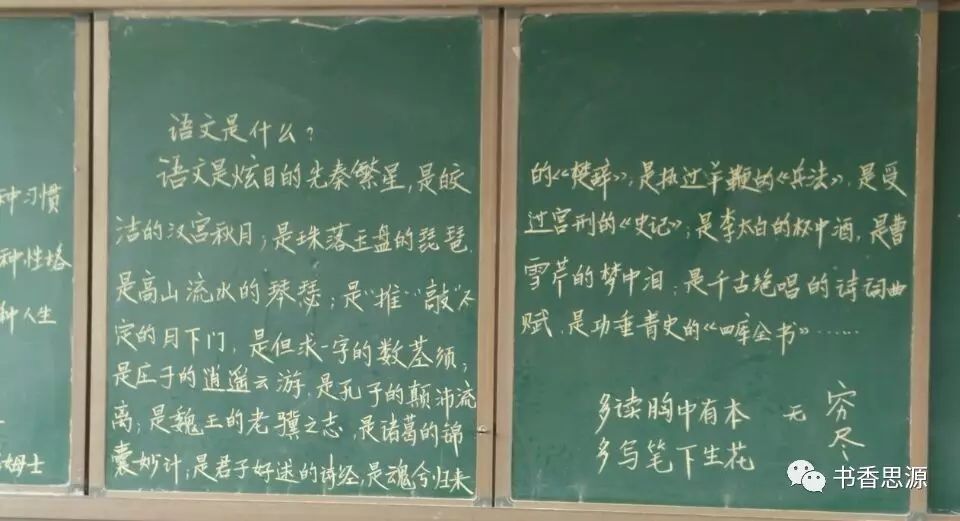 种习惯
种性格
种人生
姆士
语文是什么?
语文是炫目的先秦繁星,是皎
洁的汉宫秋月;是珠落玉盘的琵琶,
是高山流水的琴瑟;是“推”“敲”不
定的月下门,是但求一字的数茎须;
是庄子的逍遥云游,是孔子的颠沛流
离;是魏王的老骥之志,是诸葛的锦
囊妙计;是君子好逑的诗经,是魂兮归来
的《楚辞》,是执过羊鞭的《兵法》,是受
过宫刑的《史记》;是李太白的杯中酒,是曹
雪芹的梦中泪;是千古绝唱的诗词曲
赋,是功垂青史的《四库全书》……
多读胸中有本
多写笔下生花
无穷尽
书香思源